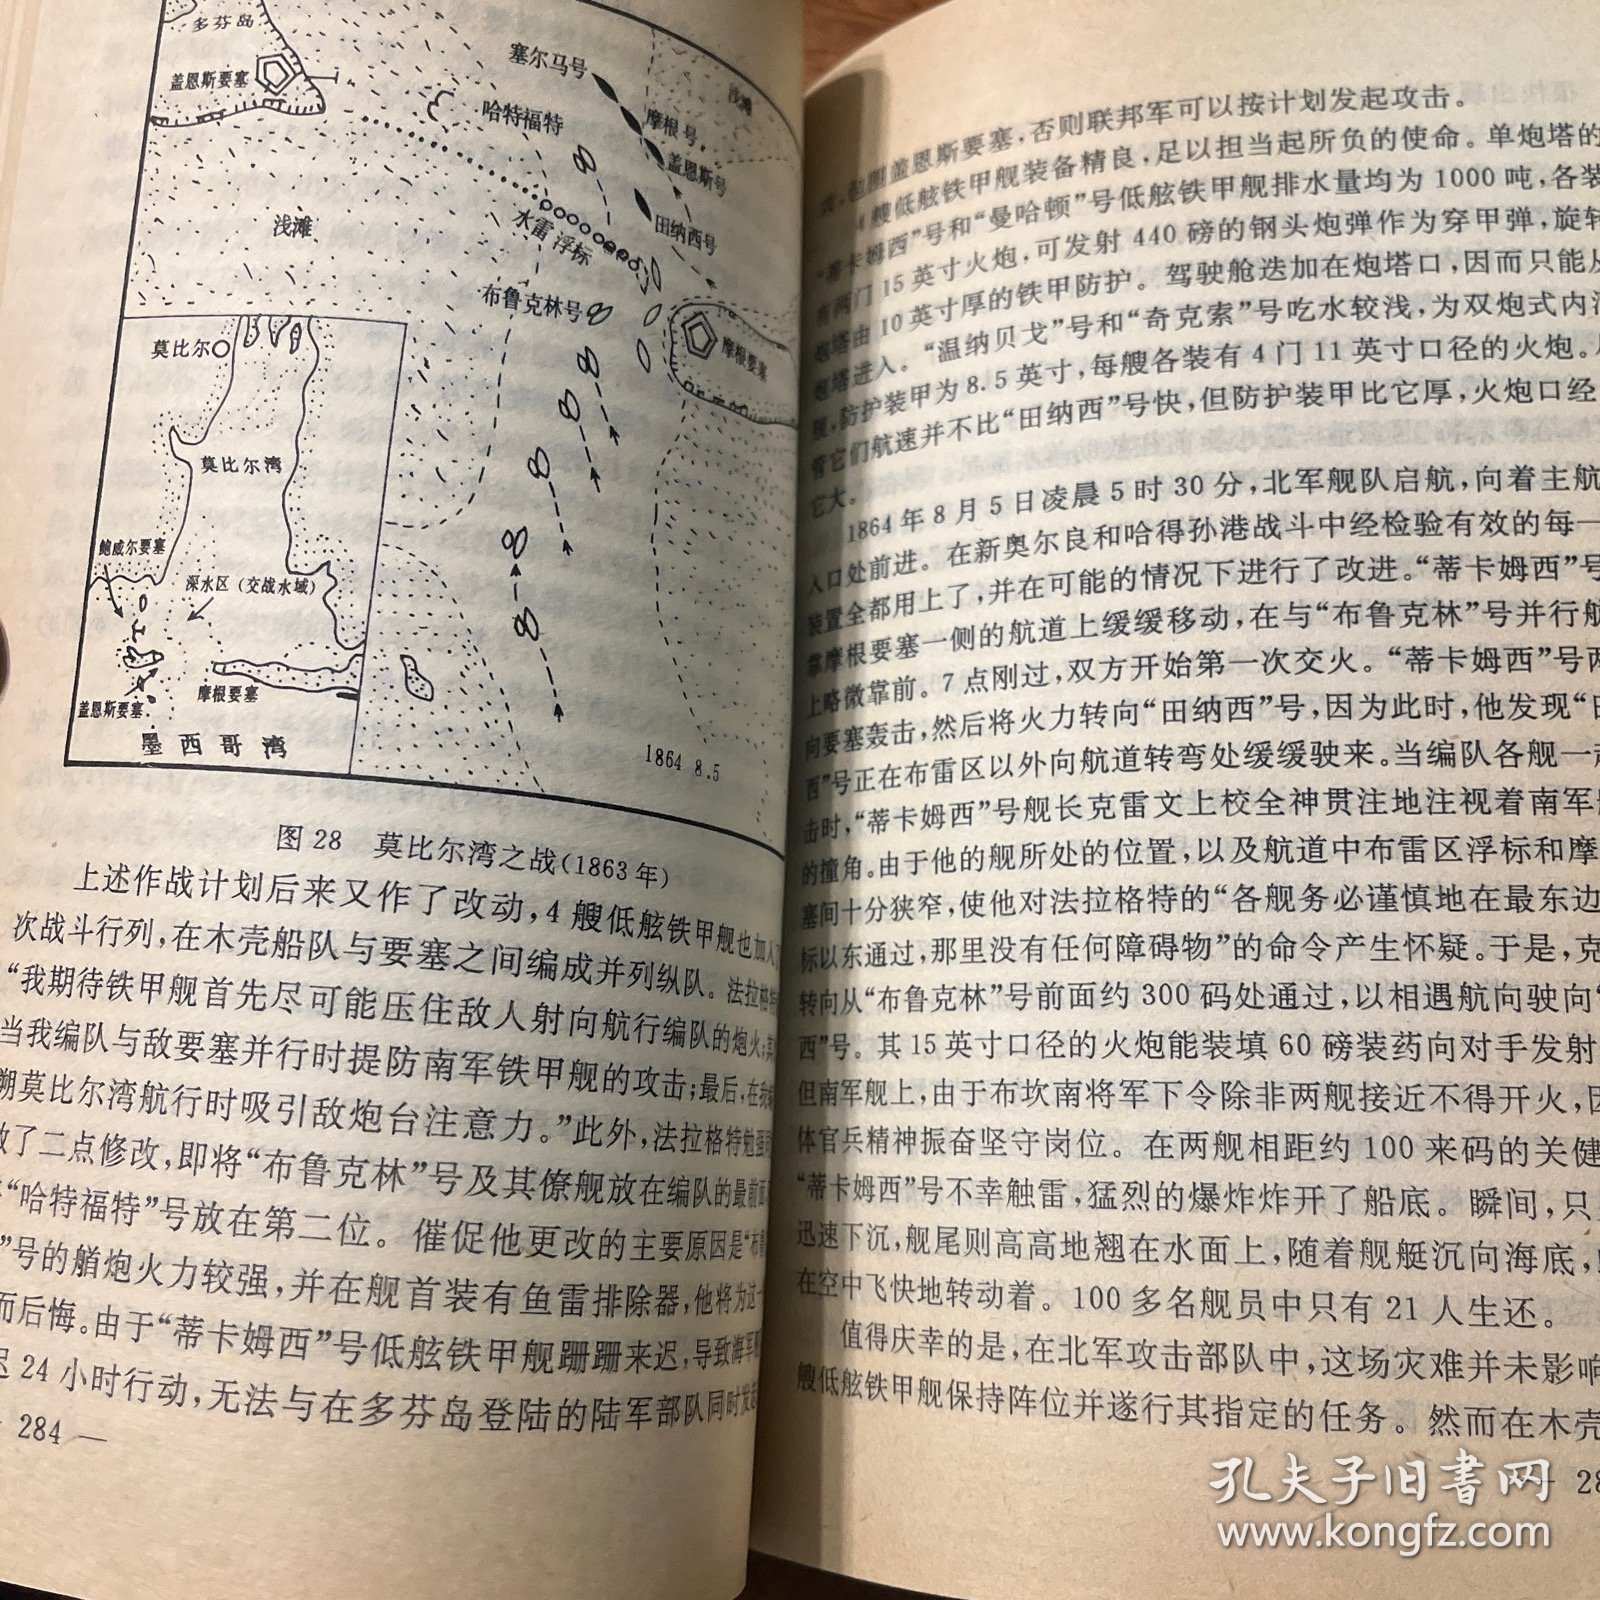 多芬岛
盖恩斯要塞
塞尔马号
哈特福特
摩根号
盖恩斯号
田纳西号
浅滩
浅滩
水雷浮标
布鲁克林号
摩根要塞
莫比尔
莫比尔湾
鲍威尔要塞
深水区(交战水域)
盖恩斯要塞
摩根要塞
墨西哥湾
1864 8.5
图28 莫比尔湾之战(1863年)
上述作战计划后来又作了改动,4艘低舷铁甲舰也加入
次战斗行列,在木壳船队与要塞之间编成并列纵队。法拉格
“我期待铁甲舰首先尽可能压住敌人射向航行编队的炮火;
当我编队与敌要塞并行时提防南军铁甲舰的攻击;最后,在我
溯莫比尔湾航行时吸引敌炮台注意力。”此外,法拉格特勉强
做了二点修改,即将“布鲁克林”号及其僚舰放在编队的最前面
“哈特福特”号放在第二位。催促他更改的主要原因是“布鲁
”号的艏炮火力较强,并在舰首装有鱼雷排除器,他将为这
而后悔。由于“蒂卡姆西”号低舷铁甲舰跚跚来迟,导致海军
迟24小时行动,无法与在多芬岛登陆的陆军部队同时发起
284 —
包围盖恩斯要塞,否则联邦军可以按计划发起攻击。
4艘低舷铁甲舰装备精良,足以担当起所负的使命。单炮塔的
“蒂卡姆西”号和“曼哈顿”号低舷铁甲舰排水量均为1000吨,各装
有两门15英寸火炮,可发射440磅的钢头炮弹作为穿甲弹,旋转
炮塔由10英寸厚的铁甲防护。驾驶舱迭加在炮塔口,因而只能从
炮塔进入。“温纳贝戈”号和“奇克索”号吃水较浅,为双炮式内河
舰,防护装甲为8.5英寸,每艘各装有4门11英寸口径的火炮。尽
管它们航速并不比“田纳西”号快,但防护装甲比它厚,火炮口经
它大。
1864年8月5日凌晨5时30分,北军舰队启航,向着主航
入口处前进。在新奥尔良和哈得孙港战斗中经检验有效的每一
装置全都用上了,并在可能的情况下进行了改进。“蒂卡姆西”号
靠摩根要塞一侧的航道上缓缓移动,在与“布鲁克林”号并行航
上略微靠前。7点刚过,双方开始第一次交火。“蒂卡姆西”号两
向要塞轰击,然后将火力转向“田纳西”号,因为此时,他发现“田
西”号正在布雷区以外向航道转弯处缓缓驶来。当编队各舰一起
击时,“蒂卡姆西”号舰长克雷文上校全神贯注地注视着南军
的撞角。由于他的舰所处的位置,以及航道中布雷区浮标和摩
塞间十分狭窄,使他对法拉格特的“各舰务必谨慎地在最东边
标以东通过,那里没有任何障碍物”的命令产生怀疑。于是,克
转向从“布鲁克林”号前面约300码处通过,以相遇航向驶向“
西”号。其15英寸口径的火炮能装填60磅装药向对手发射
但南军舰上,由于布坎南将军下令除非两舰接近不得开火,因
体官兵精神振奋坚守岗位。在两舰相距约100来码的关健
“蒂卡姆西”号不幸触雷,猛烈的爆炸炸开了船底。瞬间,只
迅速下沉,舰尾则高高地翘在水面上,随着舰艇沉向海底,
在空中飞快地转动着。100多名舰员中只有21人生还。
值得庆幸的是,在北军攻击部队中,这场灾难并未影响
艘低舷铁甲舰保持阵位并遂行其指定的任务。然而在木壳
— 28
孔夫子旧书网
www.kongfz.com